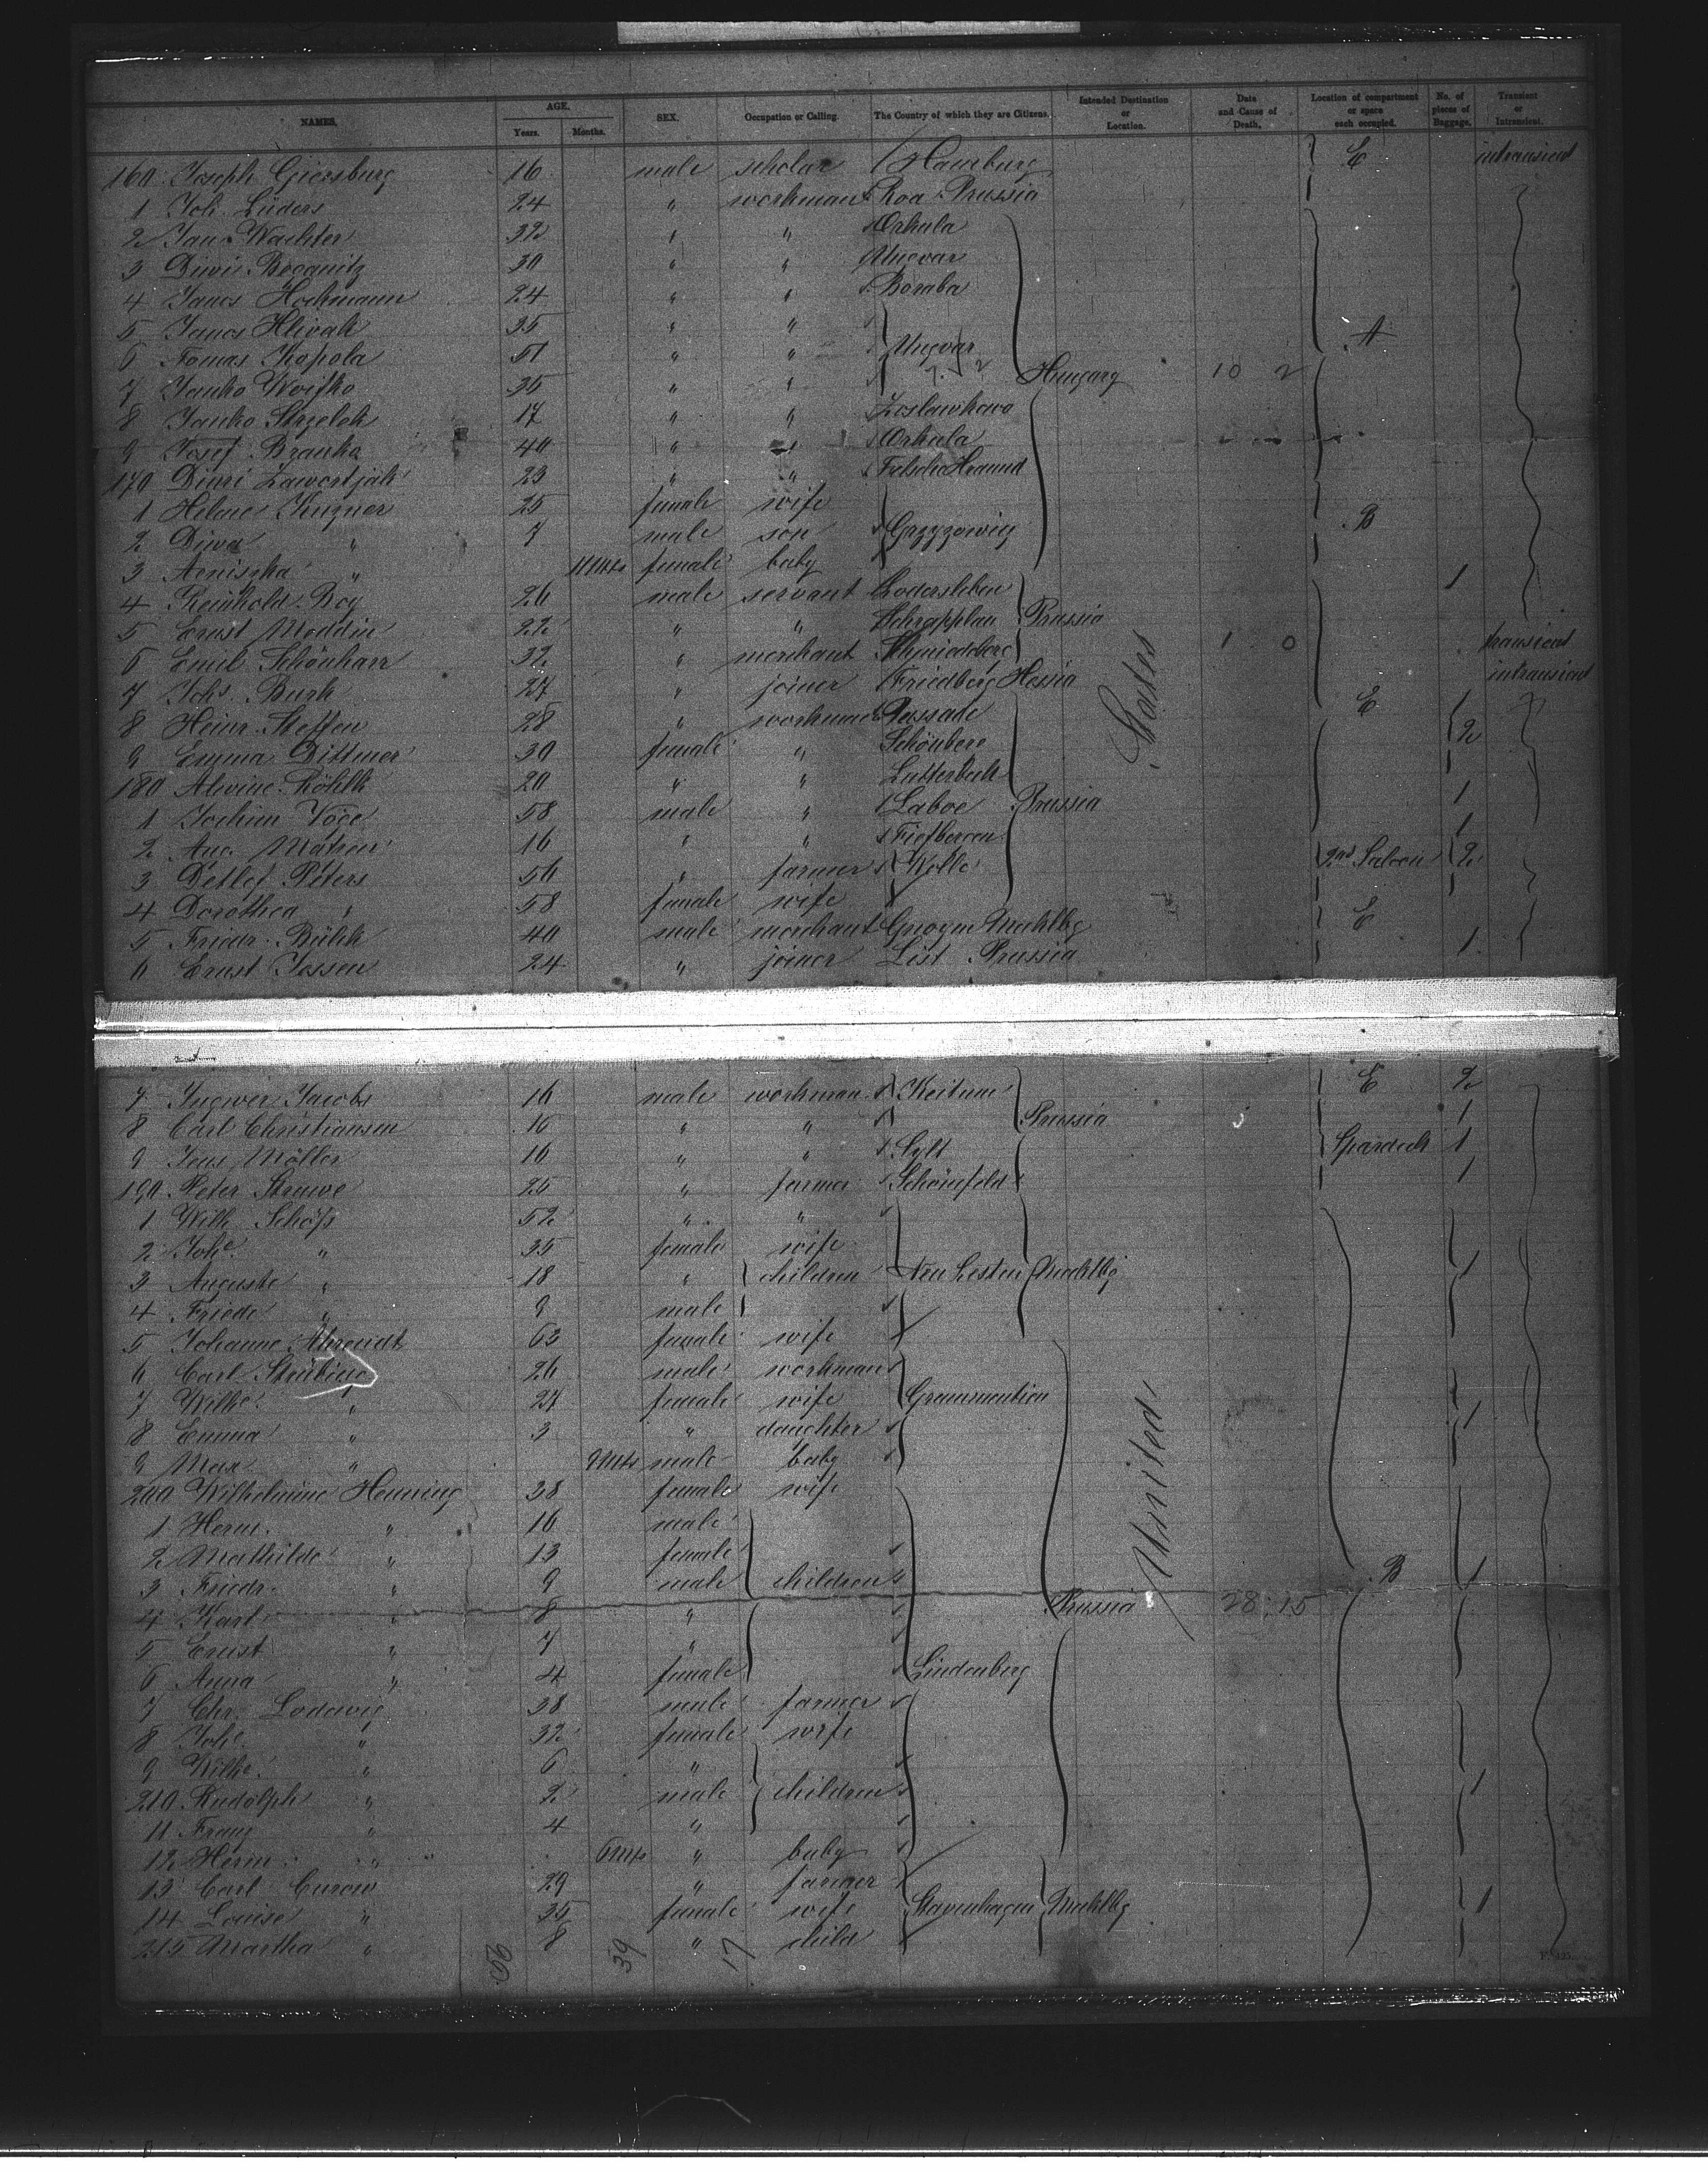 NAMES. AGE. Years. Months. SEX. Occupation or Calling. The Country of which they are Citizens. Intended Destination or Location. Date and Cause of Death. Location of compartment or space each occupied. No. of pieces of Baggage. Transient or Intransient.
160 Joseph Giersburg 16 male scholar Hamburg E intransient
1 Joh. Lüders 24 " workman Prussia
2 Jan Wachter 32 " " Orhula
3 30 " " Ungvar
4 Janos Hochmann 24 " " Boraba
5 Janos Hlivak 35 " " A
6 Tomas Kapola 51 " " Ungvar
7 Janko Woitko 35 " " Hungary 10 2
8 Janko Strzelok 17 " "
9 Josef Branka 40 " " Orhula
170 Dimi 23 " "
1 Helene Kuzner 25 female wife B
2 Diwa " 7 male son
3 " 11 Mts female baby
4 Reinhold Roy 26 male servant Lodersleben 1
5 Ernst Moddin 22 " " Schrapplau Prussia
6 Emil Schönharr 32 " merchant Schmiedeberg 1 0 transient
7 Johs Burk 27 " joiner Friedberg Hessia intransient
8 Heinr. Steffen 28 " workman Passade E 1
9 Emma Dittmer 30 female " Schönberg 2
180 Alwine Röhlk 20 " " Lutterbek
1 Jochim Vöge 58 male " Laboe Prussia 1
2 Aug. 16 " " Fiefbergen 1
3 Detlef Peters 56 " farmer 2nd Saloon 2
4 Dorothea " 58 female wife
5 Friedr. Bülck 40 male merchant Gnoyen Mecklbg E
6 Ernst Jessen 24 " joiner List Prussia 1
States
7 Ingwer Jacobs 16 male workman Keitum E 2
8 Carl Christiansen 16 " " Prussia 1
9 Jens Möller 16 " " Sylt Spardeck 1
190 Peter Struwe 25 " farmer Schönfeld 1
1 Wilh. Schöss 52 " "
2 Johe. " 35 female wife
3 Auguste " 18 " children Neu Mecklbg 1
4 Friedr " 9 male
5 Johanne Ahrendt 63 female wife
6 Carl Strübing 26 male workman
7 Wilhe. " 27 female wife Grammentien
8 Emma " 3 " daughter 1
9 Max " 9 Mts male baby
200 Wilhelmine Henning 38 female wife
1 Herm. " 16 male
2 Mathilde " 13 female
3 Friedr. " 9 male children B 1
4 Karl " 8 " Prussia 28 15
5 Ernst " 7 "
6 Anna " 4 female Lindenberg
7 Chr. Lodewig 38 male farmer
8 Johe. " 32 female wife
9 Wilhe. " 6 "
210 Rudolph " 2 male children 1
11 Franz " 4 "
12 Herm. " 6 Mts " baby
13 Carl Curow 29 " farmer
14 Louise " 35 female wife Stavenhagen Mecklbg 1
215 Martha " 8 " child
United
39 17